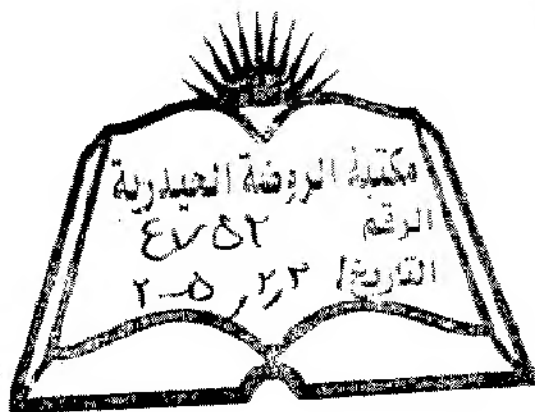 مكتبة الروضة الحيدرية
الرقم ٤٧٥٢
التاريخ /